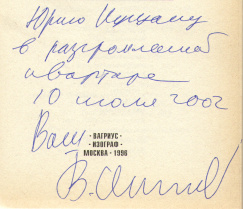 Юрию
в разгромленной
квартире
10 июля 2002
Ваш
ВАГРИУС
ИЗОГРАФ
МОСКВА • 1996
В.